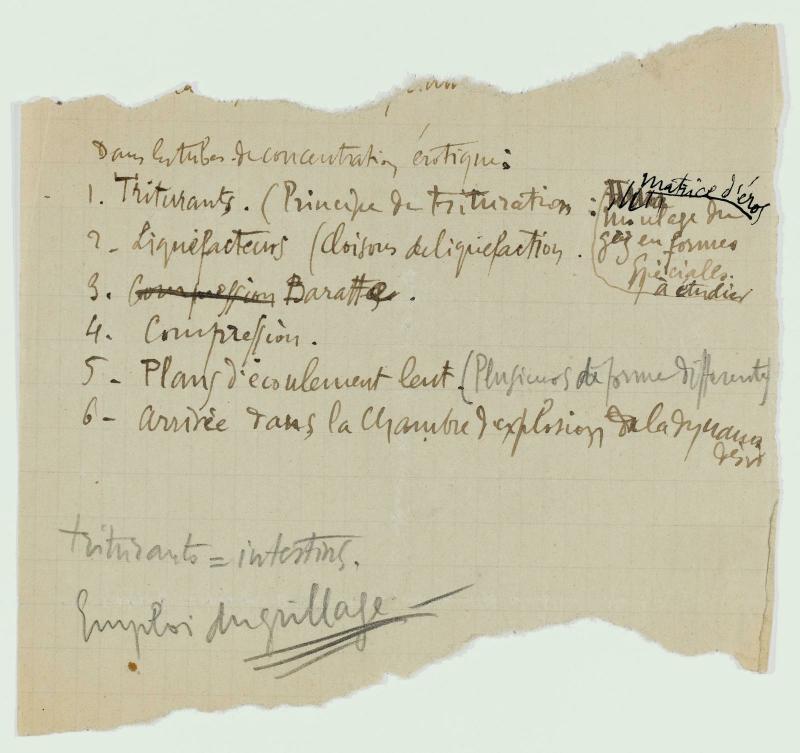 Dans les tubes de concentration érotique :
1. Triturants. (Principe de trituration : matrice d'éros
moulage du
gaz en formes
spéciales.
à étudier
2 - Liquéfacteurs (Cloisons de liquéfaction.
3. Compression Baratte.
4. Compression.
5 - Plans d'écoulement lent. (Plusieurs de forme différente)
6 - Arrivée dans la chambre d'explosion de la dynamo
désir
triturants = intestins.
Emploi du grillage